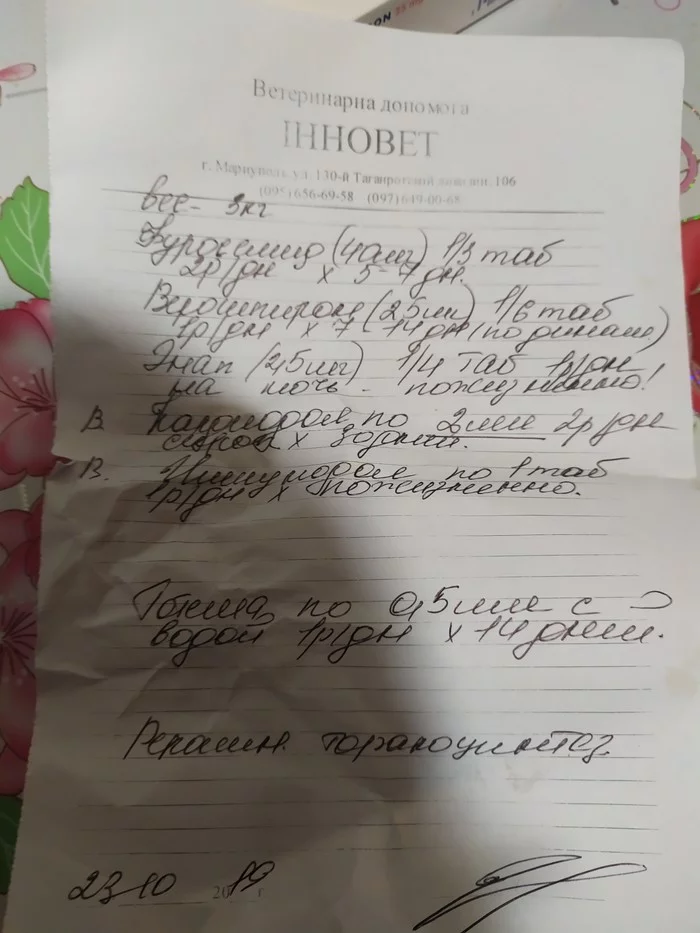 Ветеринарна допомога
ІННОВЕТ
г. Мариуполь, ул. 130-й Таганрогской дивизии, 106
(095) 656-69-58 (097) 649-00-68
вес - 3кг
Фуросемид (40мг) 1/3 таб
2р/дн х 5-7 дн.
Верошпирон (25мг) 1/6 таб
1р/дн х 7-14 дн (по динам)
Энап (2,5мг) 1/4 таб 1р/дн
на ночь - пожизненно!
В. по 2мл 2р/дн
х
В. по 1 таб
1р/дн х пожизненно.
по 0,5мл с
водой 1р/дн х 14 дней.
торакоцинтез
23 10 2019 г